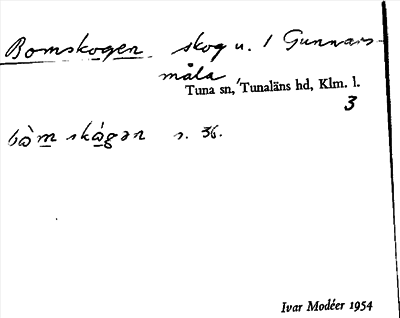 Bomskogen skog u. 1 Gunnars-
måla
Tuna sn, Tunaläns hd, Klm. l.
3
bòm skágan s. 36.
Ivar Modéer 1954